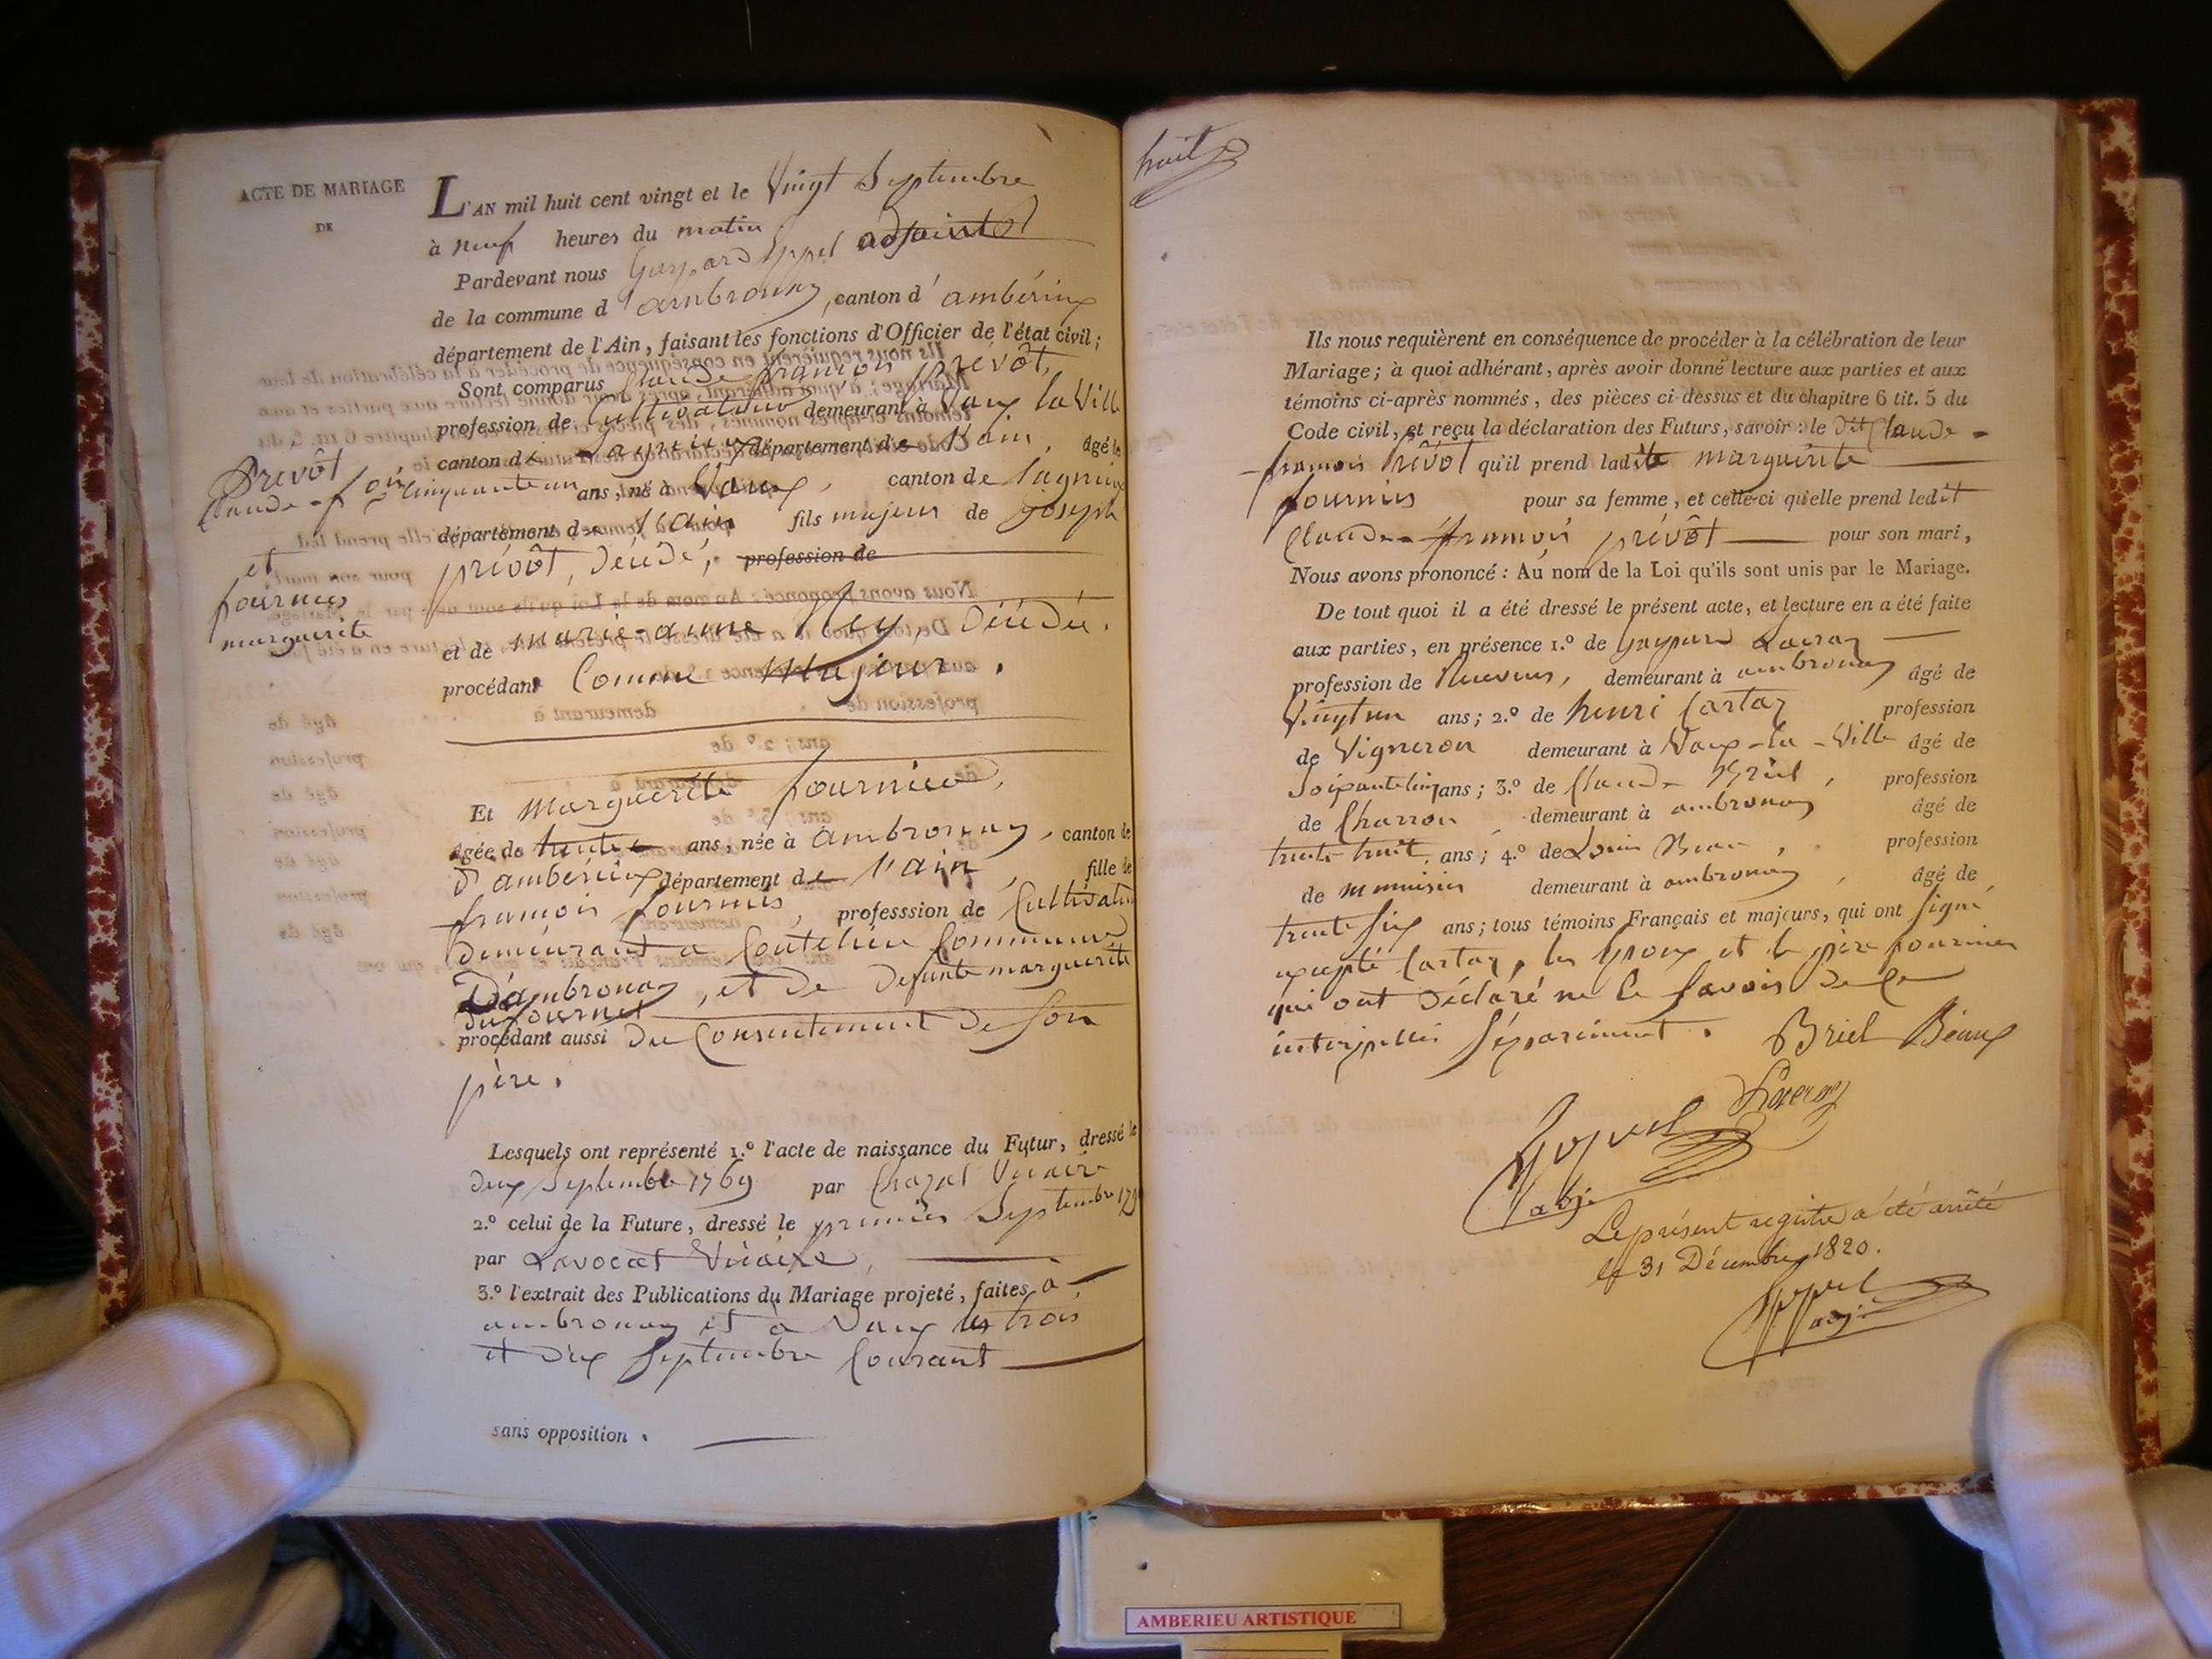 ACTE DE MARIAGE
DE
Prevôt
Claude-f.ois
et
fournier
marguerite
L'AN mil huit cent vingt et le Vingt Septembre
à neuf heures du matin
Pardevant nous Gaspard adjoint
de la commune d'ambronay, canton d'ambérieux
département de l'Ain, faisant les fonctions d'Officier de l'état civil;
Sont comparus Claude françois prévôt,
profession de Cultivateur demeurant à Vaux la Ville
canton de Lagnieux département de l'ain, âgé de
Cinquante un ans, né à Vaux, canton de Lagnieux
département de l'ain fils majeur de Joseph
prévôt, décédé, profession de
et de marie-anne Rey, décédée.
procédant Comme Majeur.
Et marguerite fournier,
âgée de trente ans, née à ambronay, canton de
d'ambérieux département de l'ain, fille de
françois fournier, professsion de Cultivateur
demeurant a Coutelieu Commune
D'ambronay, et de defunte marguerite
dufournel
procédant aussi du Consentement de son
père.
Lesquels ont représenté 1.º l'acte de naissance du Futur, dressé le
deux Septembre 1769 par Chazal Vicaire
2.º celui de la Future, dressé le premier Septembre
par Lavocat Vicaire,
3.º l'extrait des Publications du Mariage projeté, faites à
ambronay et à Vaux les trois
et dix Septembre Courant
sans opposition.
huit
Ils nous requièrent en conséquence de procéder à la célébration de leur
Mariage; à quoi adhérant, après avoir donné lecture aux parties et aux
témoins ci-après nommés, des pièces ci-dessus et du chapitre 6 tit. 5 du
Code civil, et reçu la déclaration des Futurs, savoir: le dit Claude-
françois Prévôt qu'il prend ladite marguerite
fournier pour sa femme, et celle-ci qu'elle prend ledit
Claude-françois prévôt pour son mari,
Nous avons prononcé: Au nom de la Loi qu'ils sont unis par le Mariage.
De tout quoi il a été dressé le présent acte, et lecture en a été faite
aux parties, en présence 1.º de Gaspard
profession de demeurant à ambronay âgé de
Vingt un ans; 2.º de henri Cartaz profession
de Vigneron demeurant à Vaux-la-Ville âgé de
Soixante cinq ans; 3.º de Claude Briel, profession
de Charron demeurant à ambronay âgé de
trente huit ans; 4.º de Louis Beau, profession
de menuisier demeurant à ambronay, âgé de
trente six ans; tous témoins Français et majeurs, qui ont signé
excepté Cartaz, les Epoux et le père fournier
qui ont déclaré ne le savoir de ce
interpellés séparément. Briel Béaux
adj.
Le présent registre a été arrêté
le 31 Décembre 1820.
adj.
AMBERIEU ARTISTIQUE